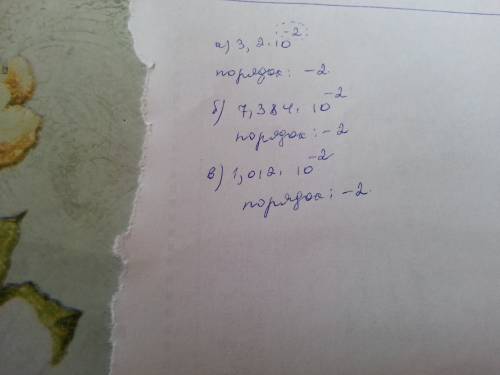 а) 3,2·10⁻²
порядок: -2
б) 7,384·10⁻²
порядок: -2
в) 1,012·10⁻²
порядок: -2.